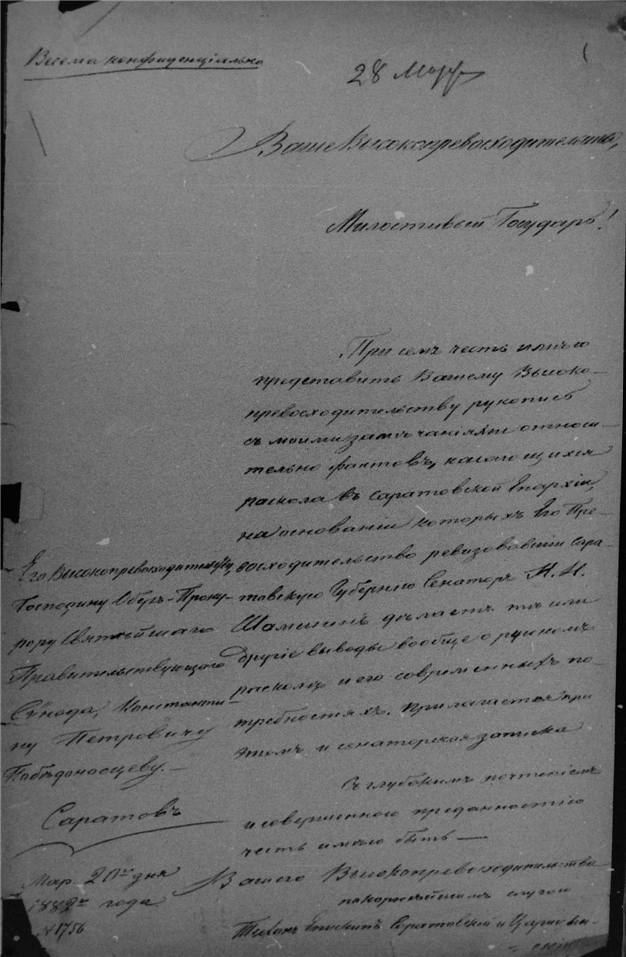 Весьма конфиденціально
28 Март
Ваше Высокопревосходительство,
Милостивый Государь!
При семъ честь имѣю
представить Вашему Высоко-
превосходительству рукопись
съ моими замѣчаніями относи-
тельно фактовъ, касающихся
раскола въ Саратовской Епархіи,
на основаніи которыхъ Его Пре-
восходительство ревизовавшій Сара-
товскую Губернію Сенаторъ И. И.
Шамшинъ дѣлаетъ тѣ или
другіе выводы вообще о русскомъ
расколѣ и его современныхъ по-
требностяхъ. Прилагается при
этомъ и сенаторская записка
Съ глубокимъ почтеніемъ
и совершенною преданностію
честь имѣю быть —
Вашего Высокопревосходительства
покорнѣйшимъ слугою
Тихонъ Епископъ Саратовскій и Царицын-
скій
Его Высокопревосходительству,
Господину Оберъ-Проку-
рору Святѣйшаго
Правительствующаго
Сѵнода, Константи-
ну Петровичу
Побѣдоносцеву. —
Саратовъ
Мар. 20го дня
1882го года
№ 1756